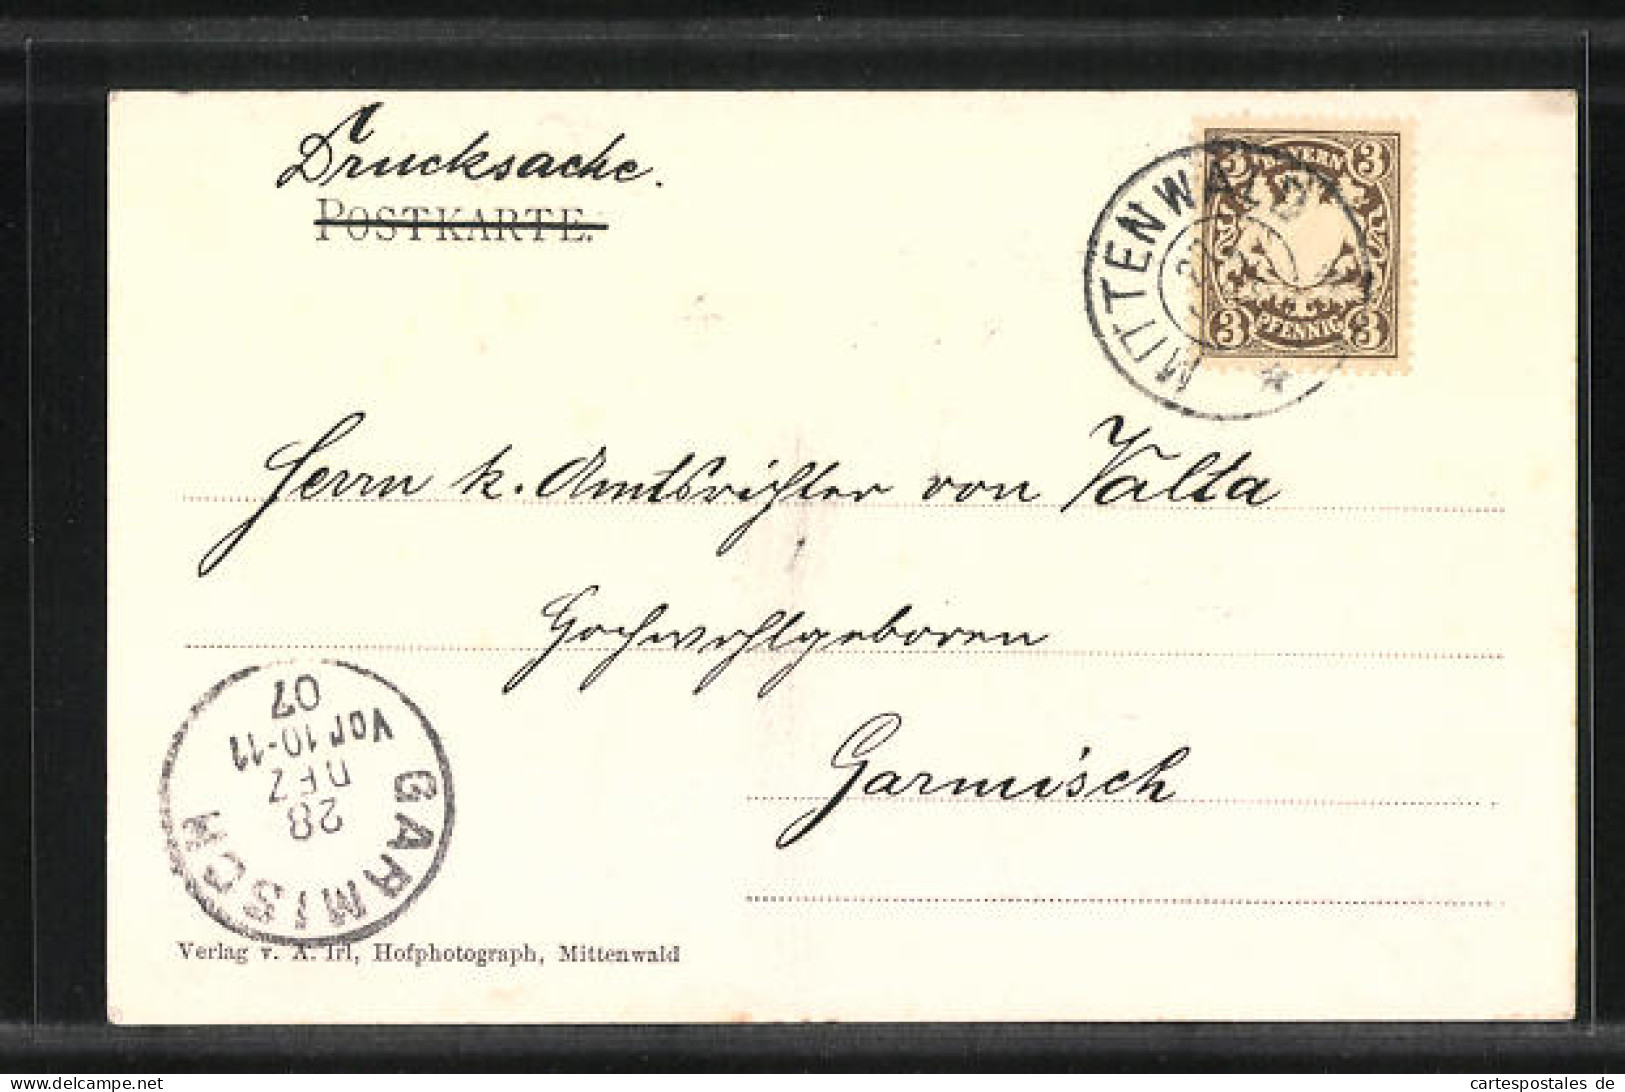 Drucksache.
POSTKARTE.
3 BAYERN 3
3 PFENNIG 3
MITTENWALD
Herrn k. Amtsrichter von Valta
Hochwohlgeboren
Garmisch
GARMISCH
28
DEZ
Vor 10-11
07
Verlag v. A. Irl, Hofphotograph, Mittenwald
cartespostales de